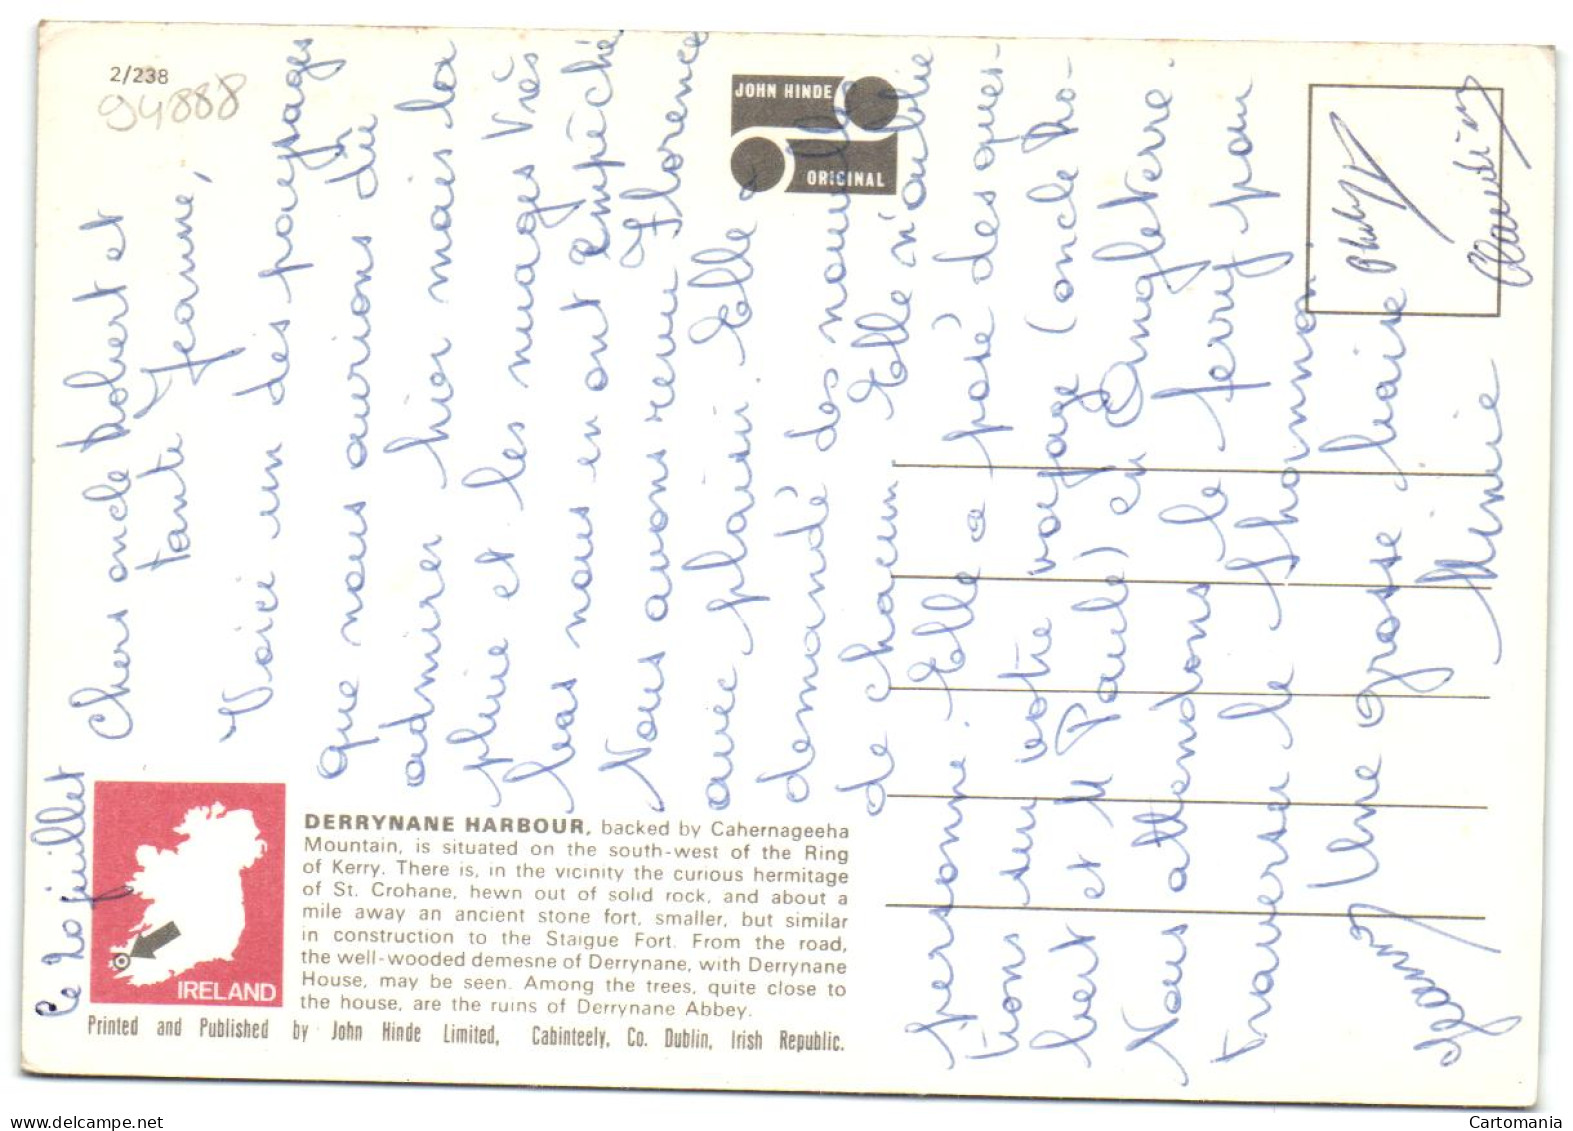 2/238
94888
JOHN HINDE
ORIGINAL
Ce 20 juillet
Chers oncle Robert et
tante Jeanne,
Voici un des paysages
que nous aurions dû
admirer hier mais la
pluie et les nuages très
bas nous en ont empêché
Nous avons revu Florence
avec plaisir. Elle a
demandé des nouvelles
de chacun Elle n'oublie
personne. Elle a posé des ques-
tions sur votre voyage (oncle Ro-
bert et M Paule) en Angleterre.
Nous attendons le ferry pour
traverser le Shannon
Une grosse baise
Minie
Claudine
IRELAND
DERRYNANE HARBOUR, backed by Cahernageeha
Mountain, is situated on the south-west of the Ring
of Kerry. There is, in the vicinity the curious hermitage
of St. Crohane, hewn out of solid rock, and about a
mile away an ancient stone fort, smaller, but similar
in construction to the Staigue Fort. From the road,
the well-wooded demesne of Derrynane, with Derrynane
House, may be seen. Among the trees, quite close to
the house, are the ruins of Derrynane Abbey.
Printed and Published by John Hinde Limited, Cabinteely, Co. Dublin, Irish Republic.
Cartomania